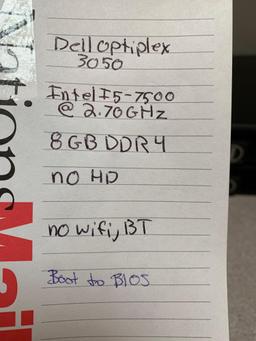 Dell optiplex
3050
Intel I5-7500
@ 2.70GHz
8GB DDR4
no HD
no wifi, BT
Boot to BIOS
Nations
Mail